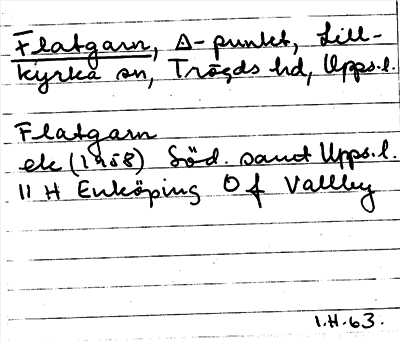 Flatgarn, Δ-punkt, Lill-
kyrka sn, Trögds hd, Upps.l.
Flatgarn
ek (1958) Söd. samt Upps.l.
11 H Enköping Of Vallby
I.H.63.